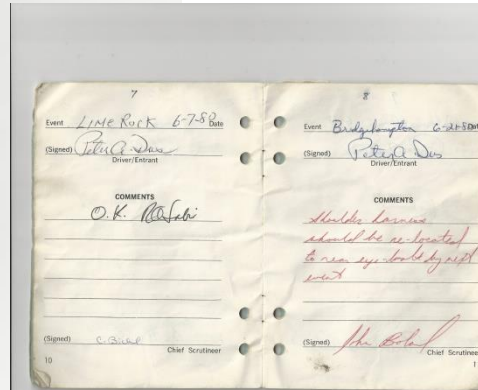 7
Event LIME ROCK 6-7-80 Date
(Signed) Peter A. Das
Driver/Entrant
COMMENTS
O.K.
(Signed)
Chief Scrutineer
10
8
Event Bridgehampton 6-21-80 Dat
(Signed) Peter A Das
Driver/Entrant
COMMENTS
Shoulder harness
should be re-located
to rear eye-bolts by next
event
(Signed) John
Chief Scrutineer
1